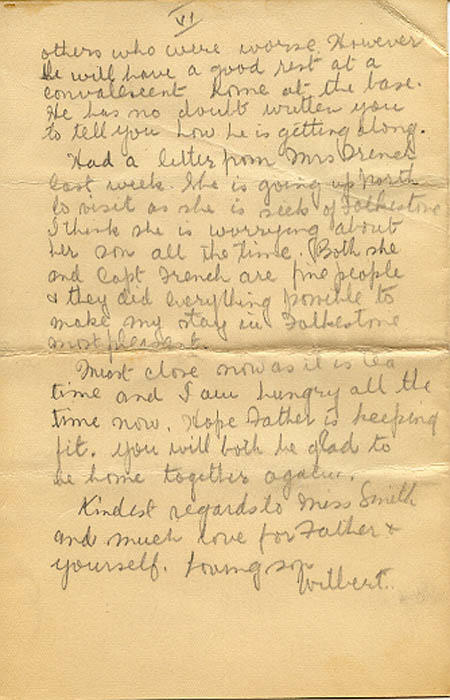 VI
others who were worse. However
he will have a good rest at a
convalescent home at the base.
He has no doubt written you
to tell you how he is getting along.
Had a letter from Mrs French
last week. She is going up North
to visit as she is sick of Folkestone
I think she is worrying about
her son all the time. Both she
and Capt French are fine people
& they did everything possible to
make my stay in Folkestone
most pleasant.
Must close now as it is tea
time and I am hungry all the
time now. Hope Father is keeping
fit. You will both be glad to
be home together again.
Kindest regards to Miss Smith
and much love for Father &
yourself. Loving son
Wilbert.